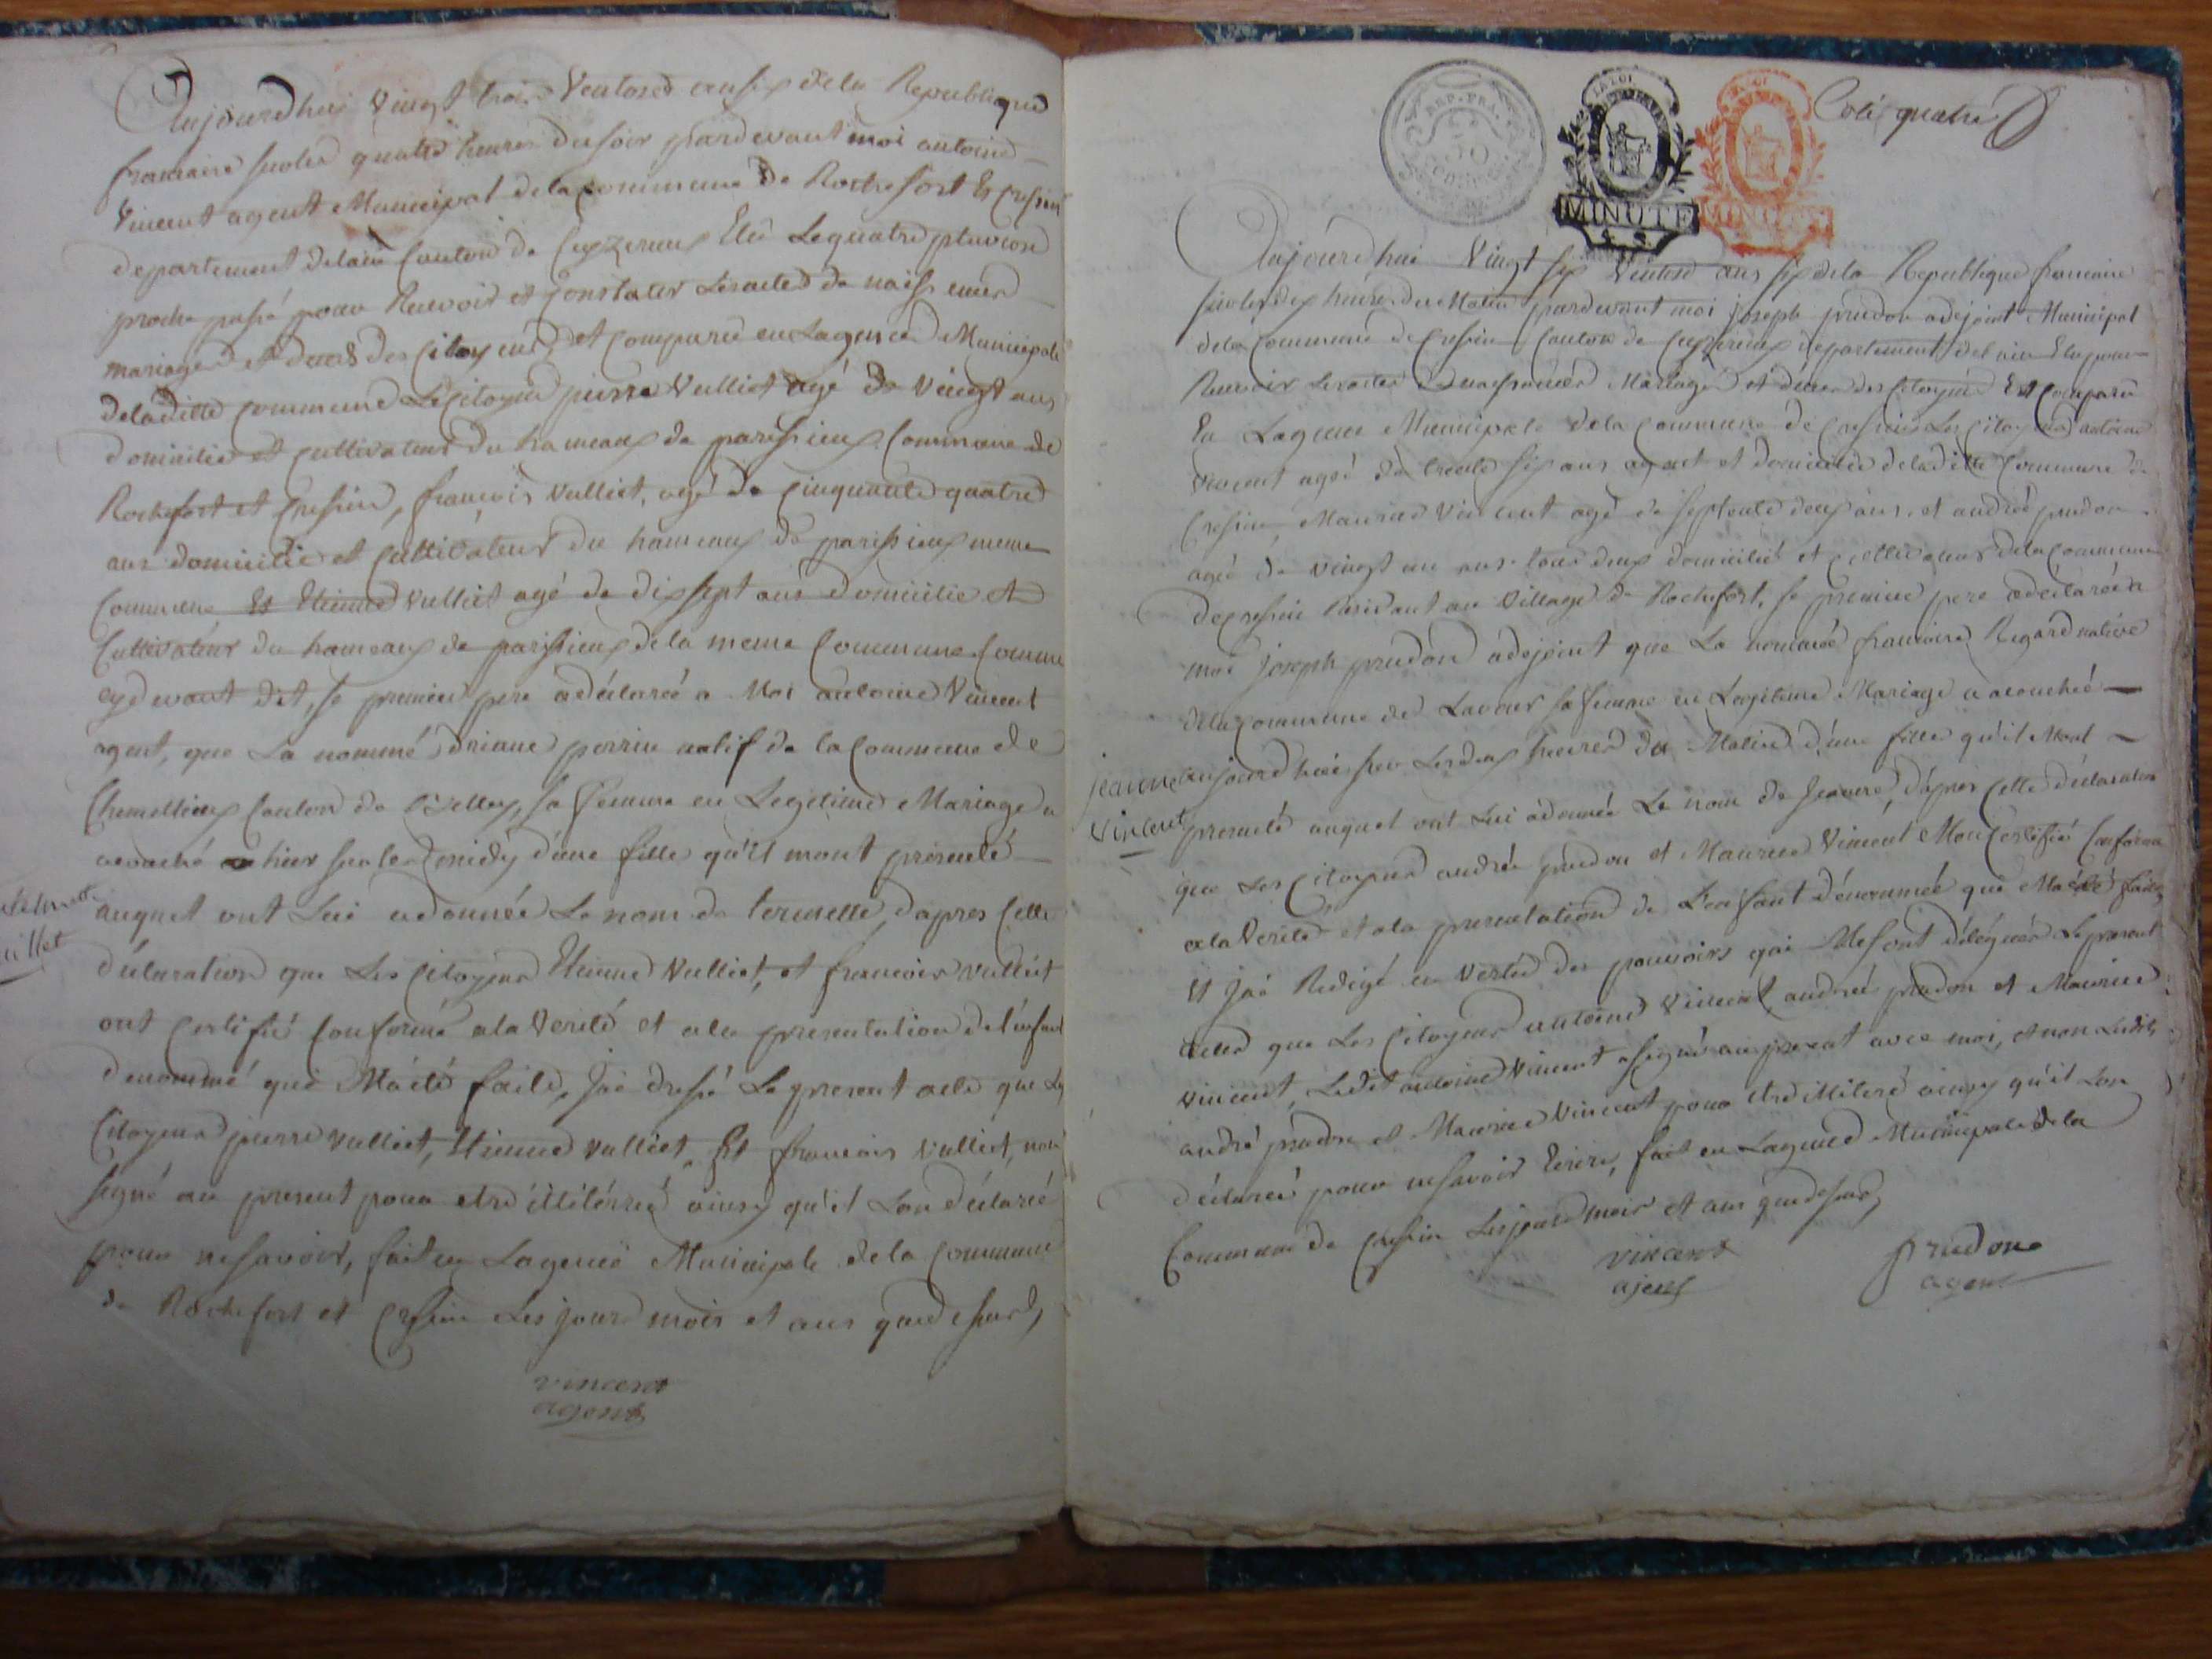 Aujourdhui vingt trois Ventose ansix dela Republique
francaise surles quatre heures dusoir pardevant moi antoine
Vincent agent Municipal dela commune de Rochefort Et Cressin
departement delain Canton de Ceyzerieux Elu Lequatre pluviose
proche passé pour Recevoir et Constater Lesactes de naissences
mariages et deces des Citoyens, et comparue en Lagence Municipale
deladitte commune Lecitoyen pierre Vulliet agé de Vingt ans
domicilie et cultivateur du hameaux de parissieux Commune de
Rochefort et Cressin, françois Vulliet, agé de Cinquante quatre
ans domicilie et Cultivateur du hameaux de parissieux meme
Commune Et Etienne Vulliet agé de dix sept ans domicilie et
Cultivateur du hameaux de parissieux de la meme Commune Comme
cydevant dit, le premier pere adéclareé a Moi antoine Vincent
agent, que La nommé driane perrin natif de la Commune de
Chemellieux Canton de Belley, sa femme en Legitime Mariage a
acouché hier surles midy d'une fille qu'il mont présenté
auquel ont Lui adonnée Le nom de termette, dapres Cette
déclaration que Les Citoyens Etienne Vulliet, et francois Vulliet
ont Certifié Conforme ala Verité et ala presentation de l'enfant
denommé qui Máeté faite, Jáe dressé Le present acte que Les
Citoyens pierre Vulliet, Etienne Vulliet, Et francois Vulliet, non
signé au present pour etre illitérré ainsy qu'il Lon déclareé
pour nesavoir, fait en Lagence Municipale dela Commune
de Rochefort et Cressin Les jours mois et ans quedessus,
vincent
agent
Coté quatre
REP. FRA.
50
CENT
LA LOI
MINUTE
MINUTE
Aujourdhui Vingt six Ventose ans six dela Republique francaise
surles dix heures du Matin pardevant moi joseph prudon adejoint Municipal
dela Commune de Cressin Canton de Ceyzerieux departement delain Elu pour
Recevoir Lesactes de naissances Mariages et deces des Citoyens Est Comparu
En Lagence Municipale dela Commune de Cressin Les Citoyens antoine
Vincent ageé de trente six ans agent et domicilié deladitte Commune de
Cressin, Maurice Vincent agé de septente deux ans, et andrée prudon
ageé de vingt un ans tous deux domicilié et cultivateur dela Commune
de Cressin Residant au Village de Rochefort, le premier pere adéclareé a
moi joseph prudon adejoint que La nommée francoise Regard native
dela Commune de Lavour sa femme en Legitime Mariage a acouchée
jeanne aujourdhui sur Les deux heures du Matin d'une fille qu'il Mont
vincent presenté auquel ont Lui adonnée Le nom de Jeanne, d'apres Cette déclaration
que Les Citoyens andrée prudon et Maurice Vincent Mont Certifié Conforme
ala Verité et ala presentation de L'enfant dénommée qui Maété faite,
Et Jaé Redigé en Vertu des pouvoirs qui Mesont délégués Lepresent
acte que Les Citoyens antoine Vincent, andrée prudon et Maurice
Vincent, Ledit antoine Vincent a signé au present avec moi, et non Ledits
andré prudon et Maurice Vincent pour etre illiteré ainsy qu'il Lon
déclareé pour nesavoir Ecrire, fait en Lagence Municipale de la
Commune de Cressin Lesjours mois et ans quedessus,
vincent
ajent
prudon
agent